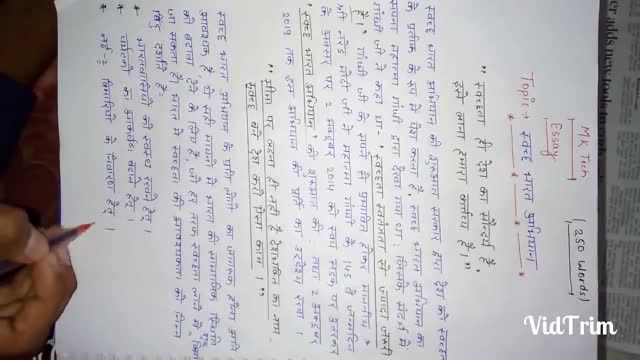 MK Tech
Essay
(250 words)
Topic → स्वच्छ भारत अभियान
"स्वच्छता ही देश का सौन्दर्य है,
इसे लाना हमारा कर्तव्य है।"
स्वच्छ भारत अभियान की शुरुआत सरकार द्वारा देश को स्वच्छता
के प्रतीक के रूप में पेश करना है स्वच्छ भारत अभियान का
सपना महात्मा गांधी द्वारा देखा गया था। जिसके संदर्भ में
गांधी जी ने कहा था "स्वच्छता स्वतंत्रता से ज्यादा जरूरी
है"। गांधी जी के सपने से प्रभावित होकर माननीय
श्री नरेंद्र मोदी जी ने महात्मा गांधी के 145 वें जन्मदिन
के अवसर पर 2 अक्टूबर 2014 को स्वयं सड़क पर उतरकर
"स्वच्छ भारत अभियान" की शुरुआत की। तथा 2 अक्टूबर
2019 तक इस अभियान की पूर्ति का उद्देश्य रखा।
"सीमा पर लड़ना ही नहीं है देशभक्ति का नाम
स्वच्छ बने देश करो ऐसा काम।"
स्वच्छ भारत अभियान के प्रति लोगों को जागरूक होना अति
आवश्यक है, ये सही मायनों में भारत की सामाजिक स्थिति
को बढ़ावा देने के लिए है, जो हर तरफ स्वच्छता लाने से
जा सकता है। भारत में स्वच्छता की आवश्यकता को निम्न
बिंदु दर्शाते हैं-
* भारतवासियों को स्वस्थ रखने हेतु।
* पर्यटकों का आकर्षण बढ़ाने हेतु।
बिमारियों के हेतु।
VidTrim